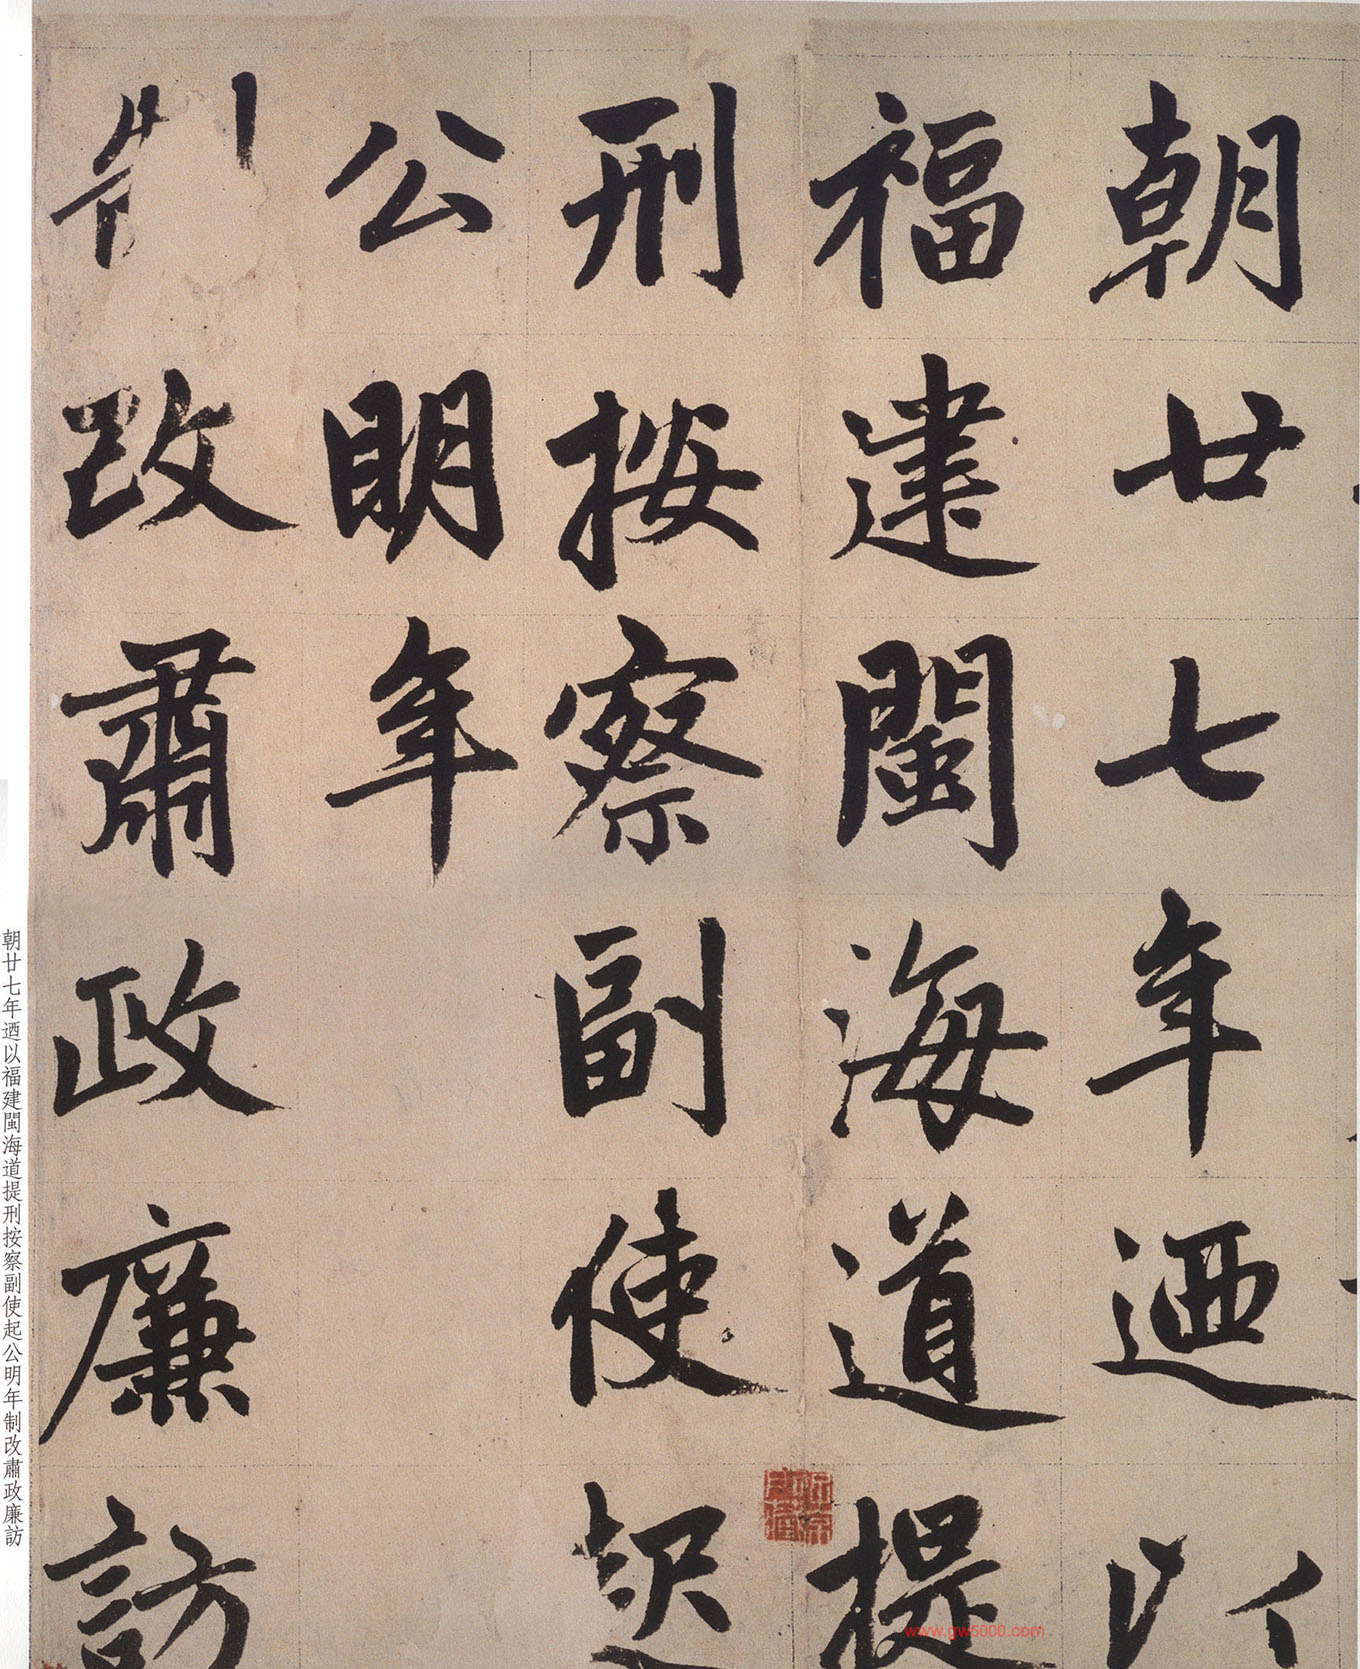 朝廿七年迺以
福建閩海道提
刑按察副使起
公明年
制改肅政廉訪
朝廿七年迺以福建閩海道提刑按察副使起公明年制改肅政廉訪
www.gw5000.com